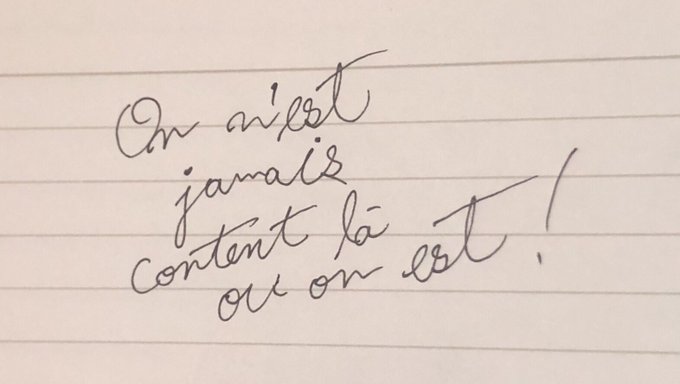 On n'est
jamais
content là
ou on est !